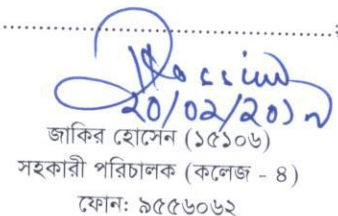 ২০/০২/২০১৭
জাকির হোসেন (১৫১০৬)
সহকারী পরিচালক (কলেজ - ৪)
ফোন: ৯৫৫৬০৬২